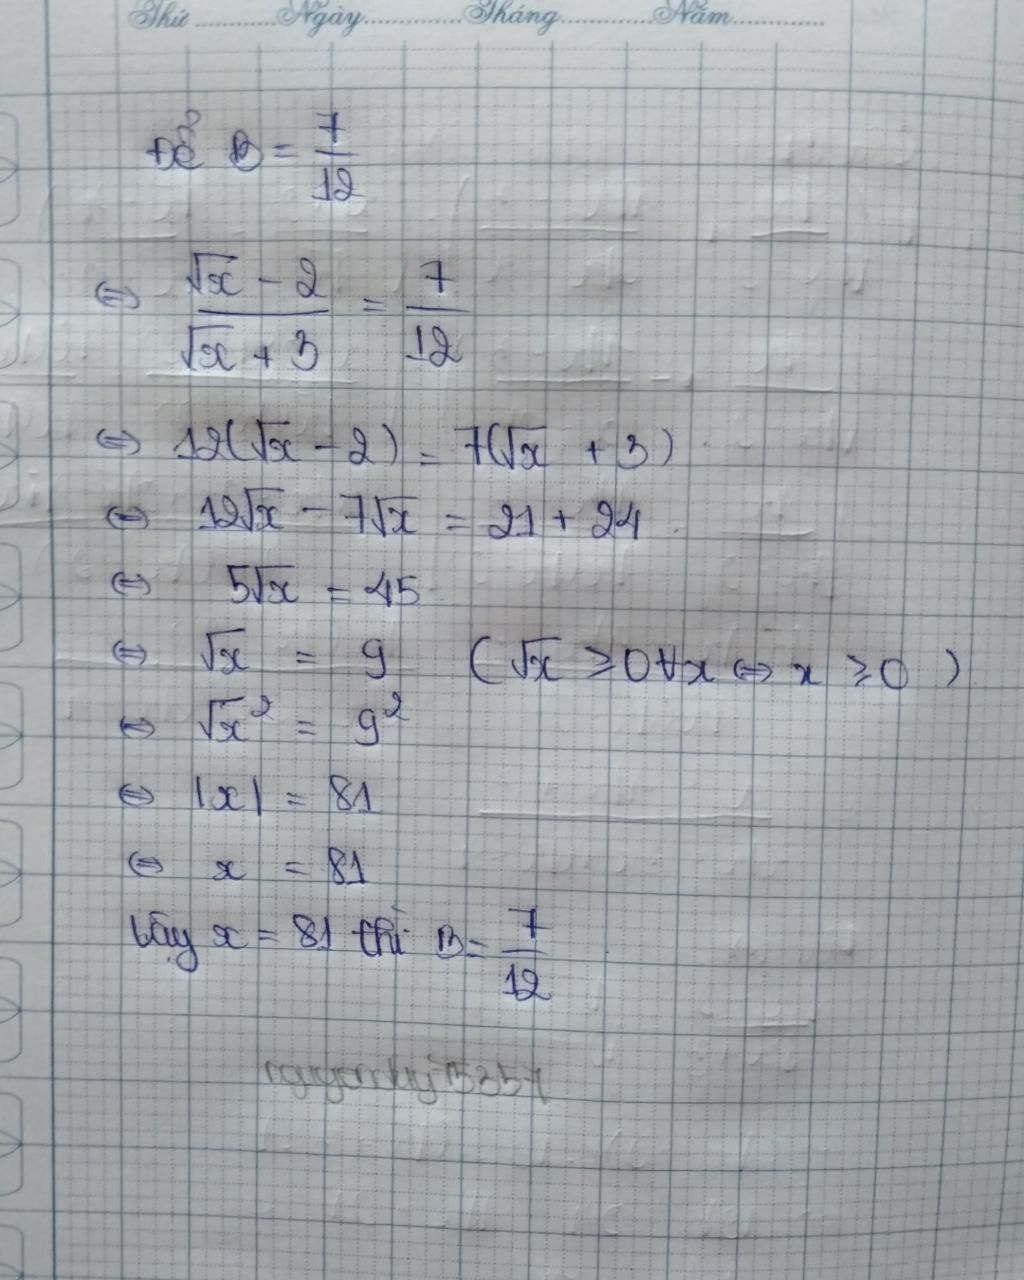 Thứ ............ Ngày .................. Tháng ................. Năm .................
Để B = 7/12
⇔ (√x - 2)/(√x + 3) = 7/12
⇔ 12(√x - 2) = 7(√x + 3)
⇔ 12√x - 7√x = 21 + 24
⇔ 5√x = 45
⇔ √x = 9 (√x ≥ 0 ∀x ⇔ x ≥ 0)
⇔ √x² = 9²
⇔ |x| = 81
⇔ x = 81
Vậy x = 81 thì B = 7/12